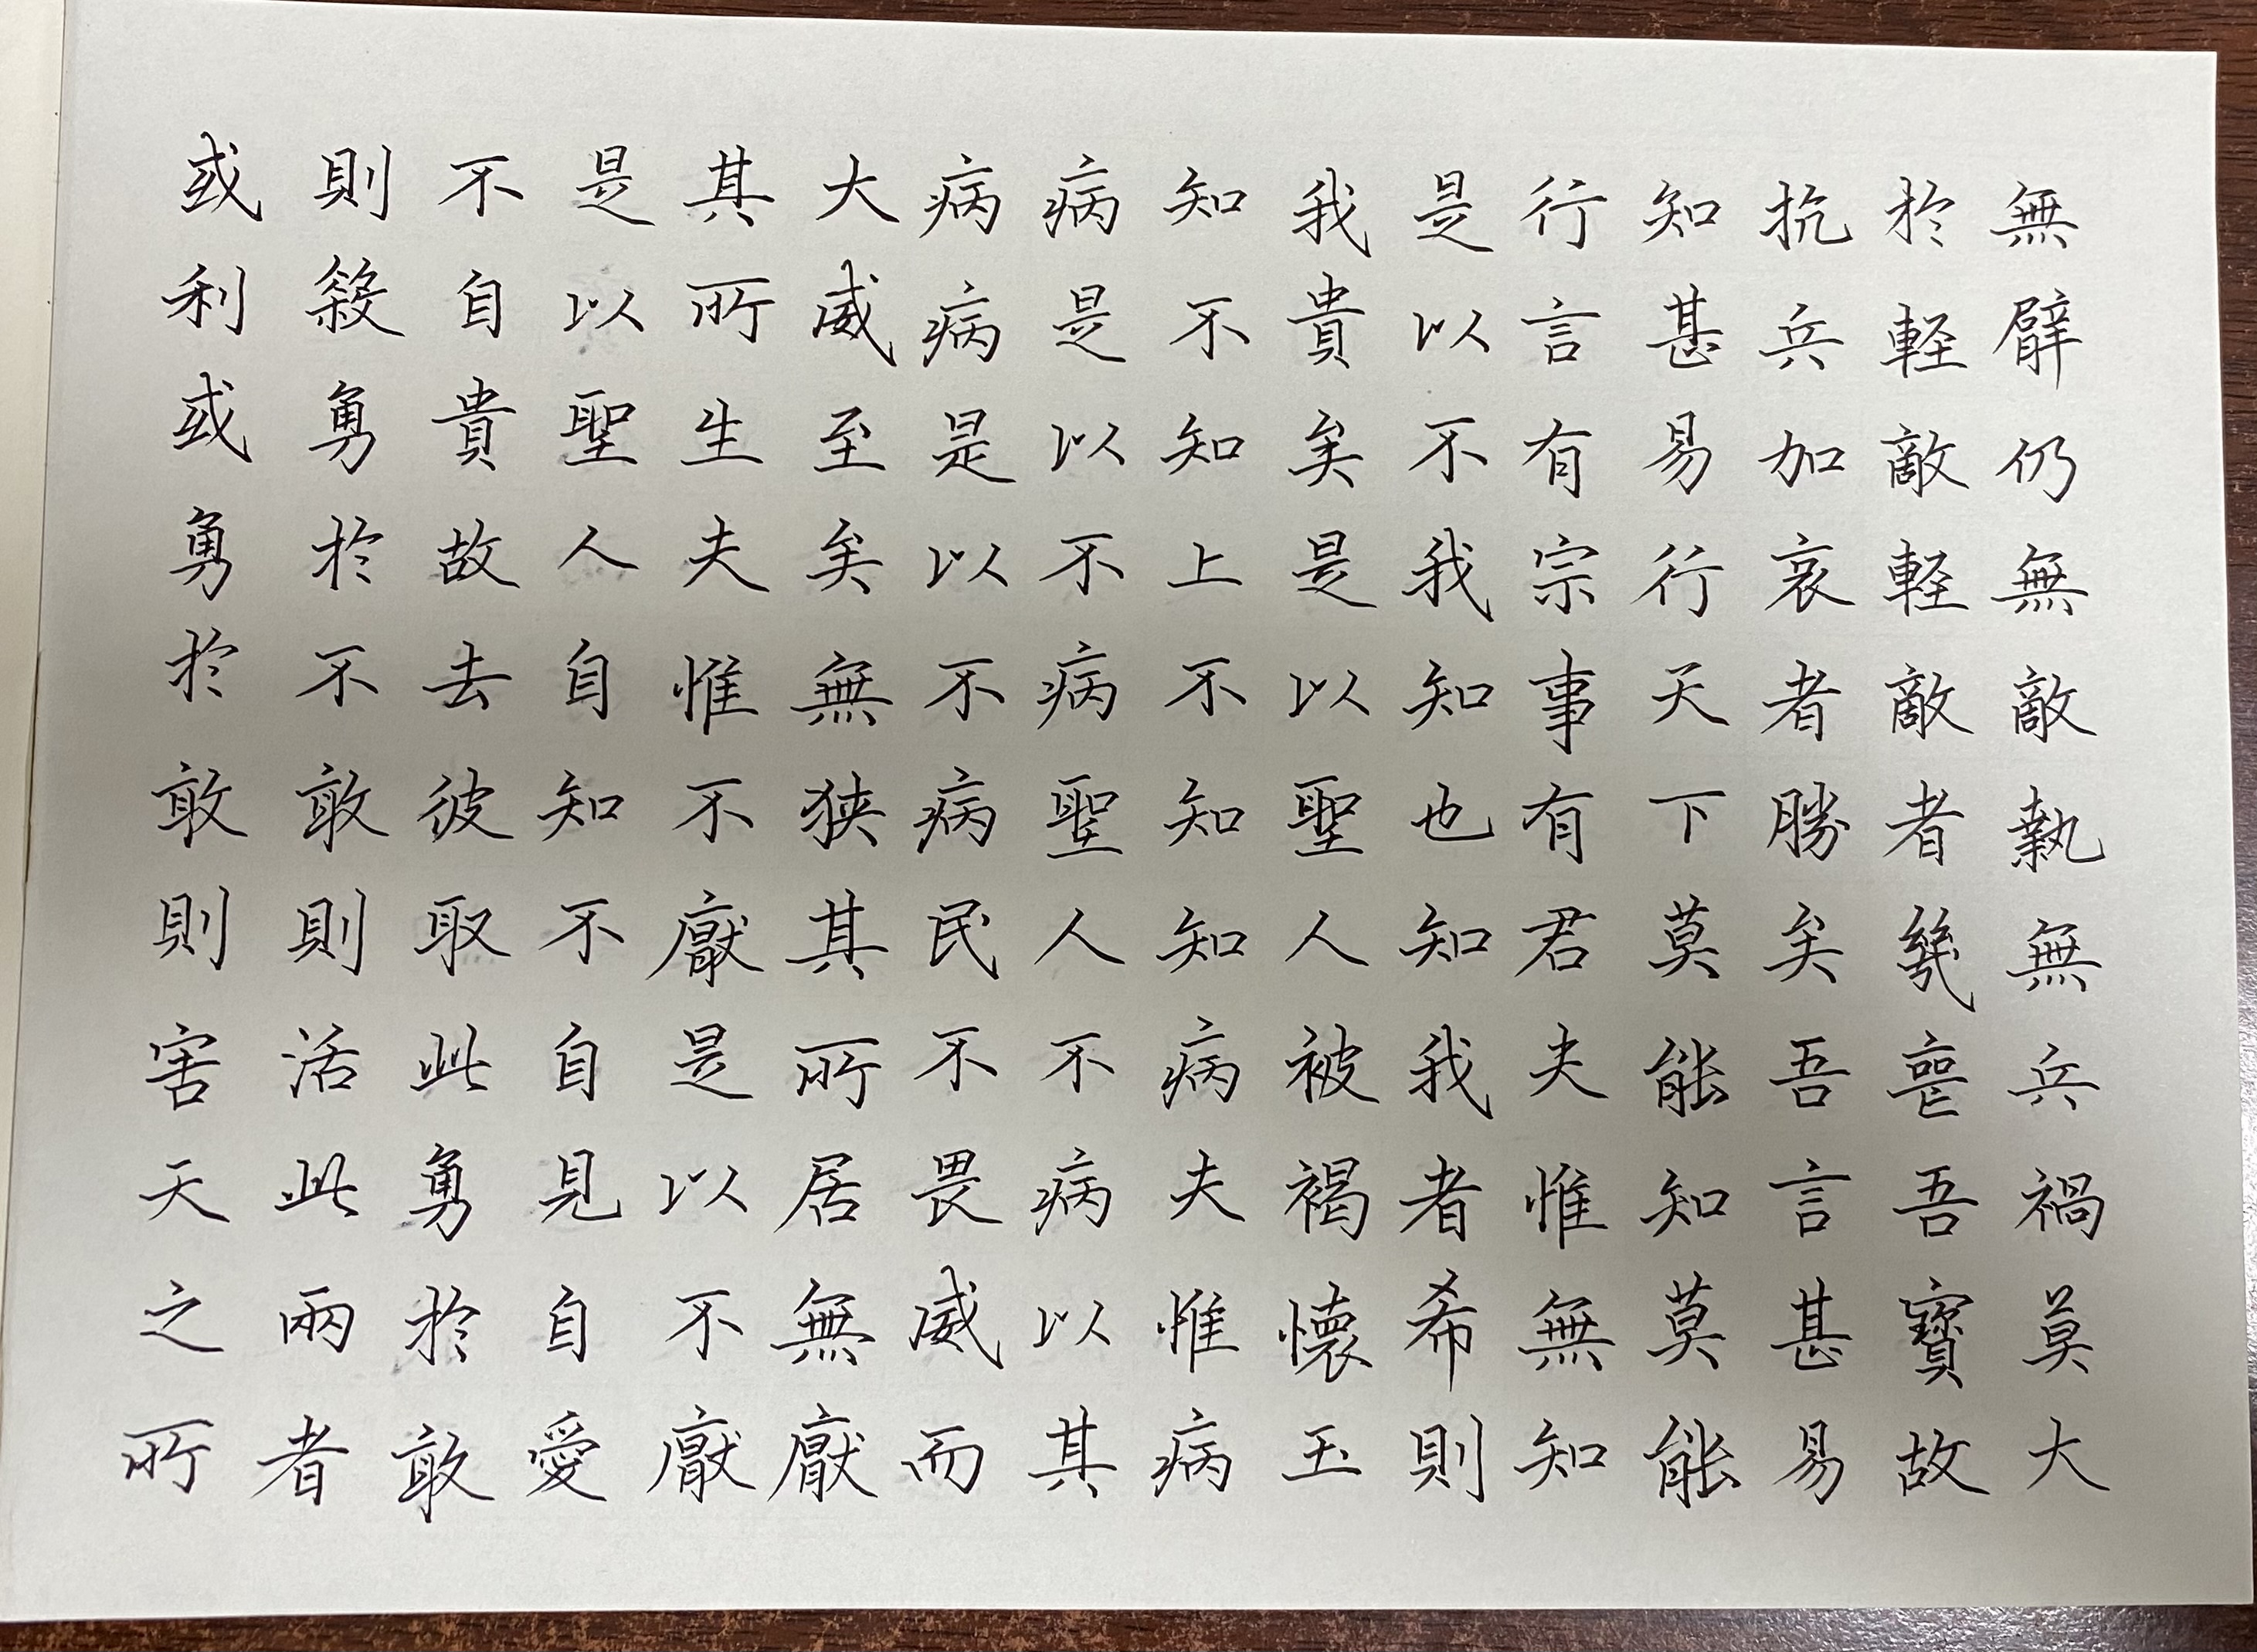 無臂仍無敵執無兵禍莫大
於軽敵軽敵者幾喪吾寶故
抗兵加哀者勝矣吾言甚易
知甚易行天下莫能知莫能
行言有宗事有君夫惟無知
是以不我知也知我者希則
我貴矣是以聖人被褐懐玉
知不知上不知知病夫惟病
病是以不病聖人不病以其
病病是以不病民不畏威而
大威至矣無狭其所居無厭
其所生夫惟不厭是以不厭
是以聖人自知不自見自愛
不自貴故去彼取此勇於敢
則殺勇於不敢則活此兩者
或利或勇於敢則害天之所